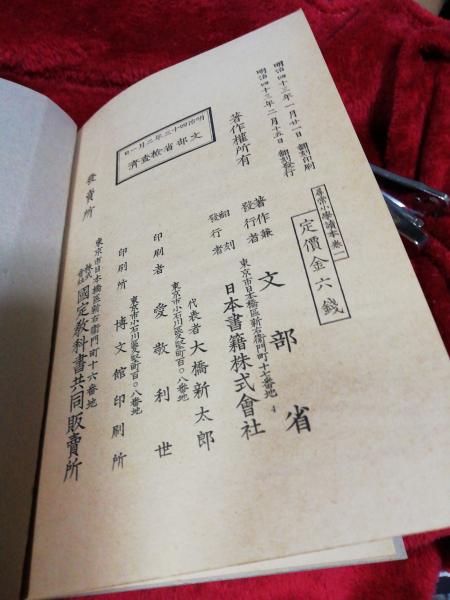 明治四十三年一月廿一日 翻刻印刷
明治四十三年二月十五日 翻刻發行
尋常小學讀本卷一
定價金六錢
著作權所有
明治四十三年二月一日
文部省檢查濟
著作兼
發行者
文部省
東京市日本橋區新右衞門町十七番地
翻刻
發行者
日本書籍株式會社
代表者 大橋新太郎
東京市小石川區久堅町百〇八番地
印刷者 愛敬利世
東京市小石川區久堅町百〇八番地
印刷所 博文館印刷所
發賣所
東京市日本橋區新右衞門町十六番地
株式
會社
國定教科書共同販賣所